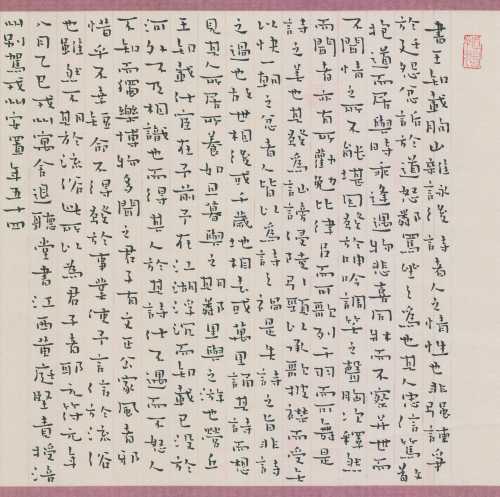 書王知載朐山雜詠後詩者人之情性也非強諫爭
於廷怨忿詬於道怒鄰罵坐之為也其人忠信篤敬
抱道而居與時乖逢遇物悲喜同牀而不察並世而
不聞情之所不能堪因發於呻吟調笑之聲胸次釋然
而聞者亦有所勸勉比律呂而可歌列干羽而可舞是
詩之美也其發為訕謗侵陵引頸以承戈披襟而受矢
以快一朝之忿者人皆以為詩之禍是失詩之旨非詩
之過也故世相後或千歲地相去或萬里誦其詩而想
見其人所居所養如旦暮與之期鄰里與之游也營丘
王知載仕宦在予前予在江湖浮沉而知載已沒於
河外不及相識也而得其人於其詩仕不遇而不怒人
不知而獨樂博物多聞之君子有文正公家風者邪
惜乎不幸短命不得發於事業使予言信於流俗
也雖然不期於流俗此所以為君子者耶元符元年
八月乙巳戎州寓舍退聽堂書江西黃庭堅責授涪
州別駕戎州安置年五十四